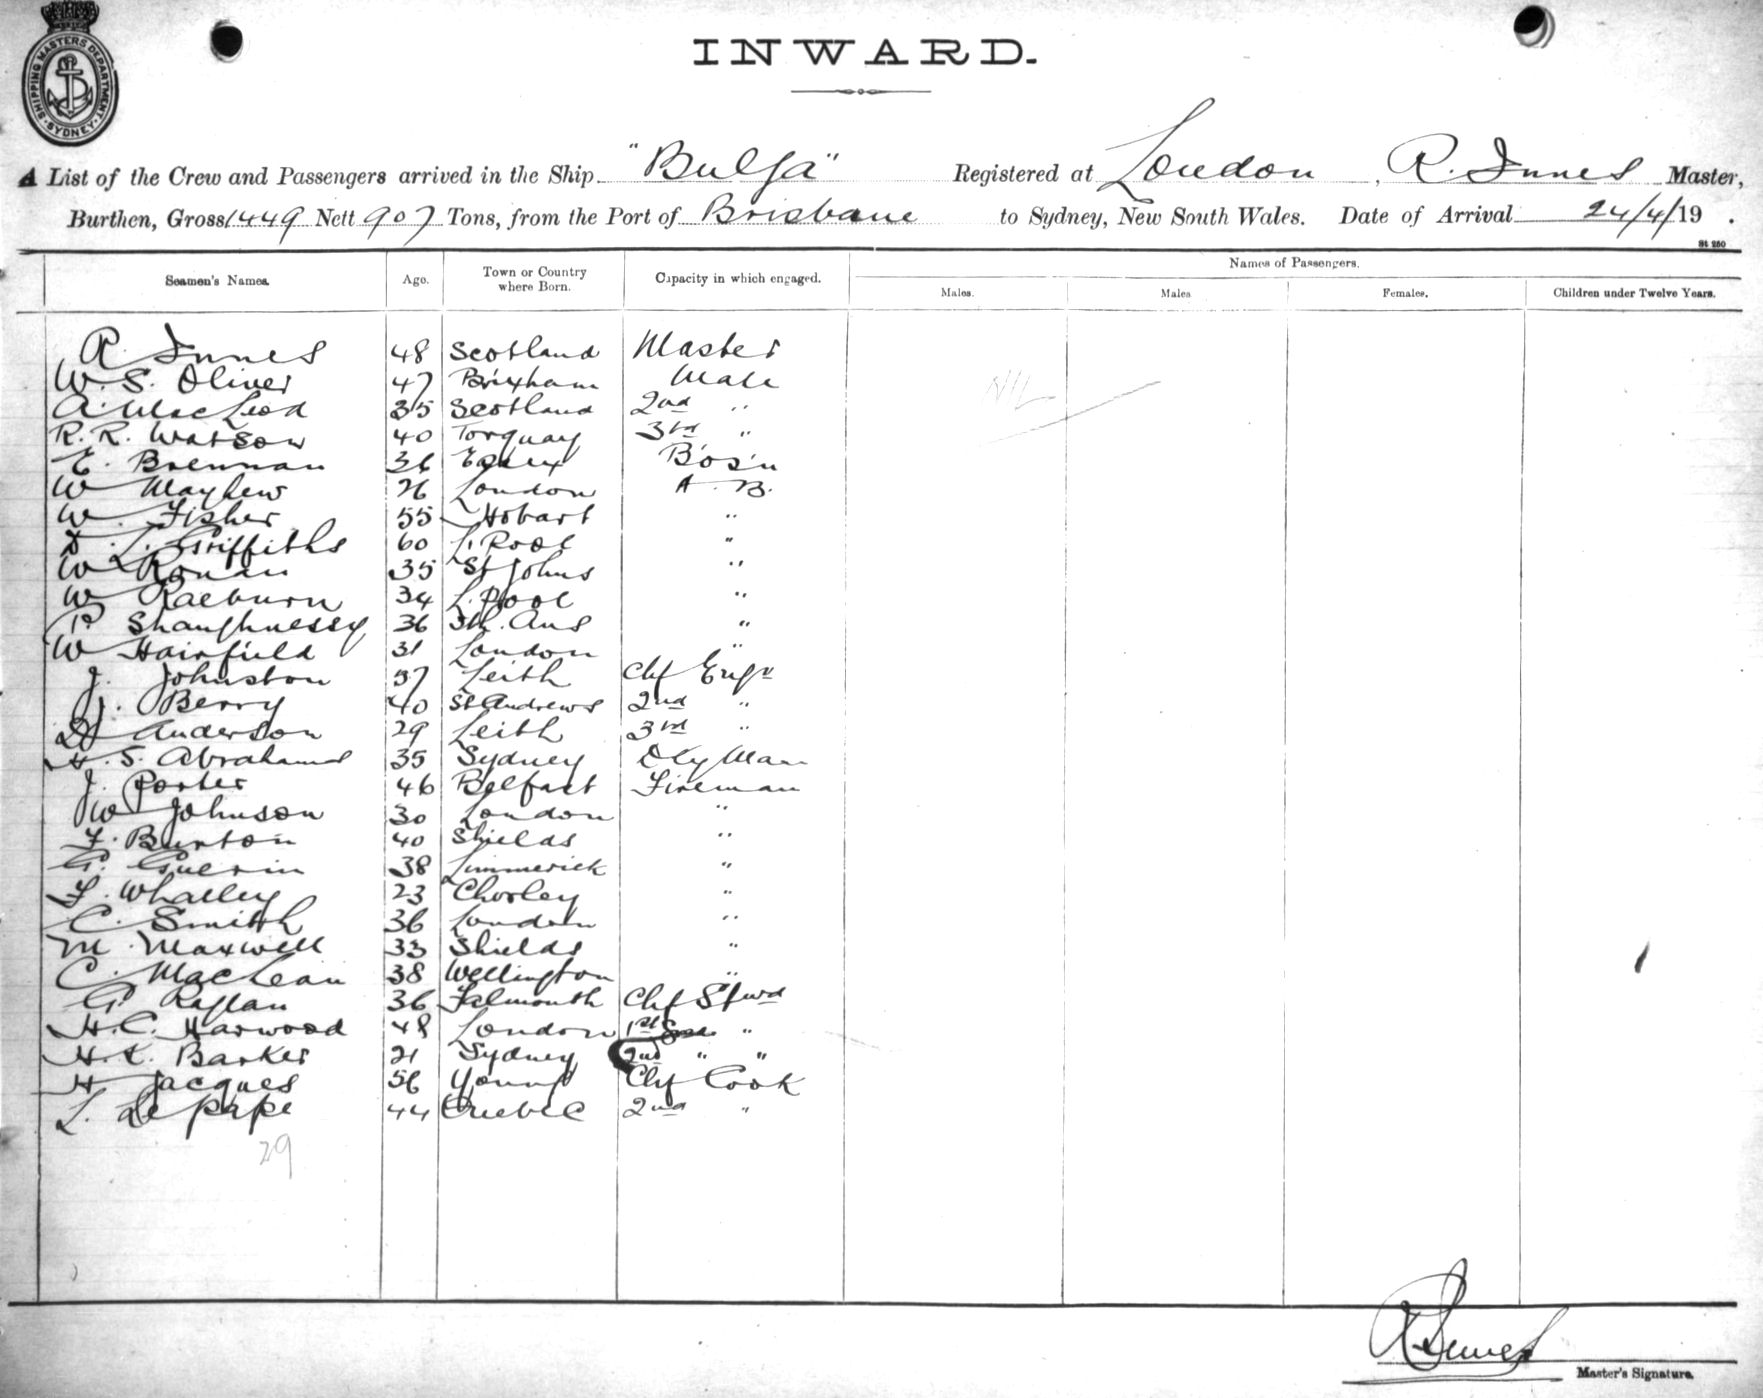 SHIPPING MASTERS DEPARTMENT
SYDNEY
INWARD.
A List of the Crew and Passengers arrived in the Ship "Bulga" Registered at London, R. Innes Master,
Burthen, Gross 1449 Nett 907 Tons, from the Port of Brisbane to Sydney, New South Wales. Date of Arrival 24/4/19 .
St 250
Seamen's Names. Age. Town or Country where Born. Capacity in which engaged. Names of Passengers.
Males. Males Females. Children under Twelve Years.
R. Innes 48 Scotland Master
W. S. Oliver 47 Brixham Mate NIL
A. MacLeod 35 Scotland 2nd "
R. R. Watson 40 Torquay 3rd "
E. Brennan 36 Essex Bos'n
W Mayhew 26 London A. B.
W. Fisher 55 Hobart "
D. L. Griffiths 60 L. Pool "
W Ronan 35 St Johns "
W Raeburn 34 L. Pool "
P Shaughnessy 36 Sth. Aus "
W Hairfield 31 London "
J. Johnston 37 Leith Chf Engr
J. Berry 40 St Andrews 2nd "
D Anderson 29 Leith 3rd "
H. S. Abrahams 35 Sydney Dky Man
J. Porter 46 Belfast Fireman
W Johnson 30 London "
F. Burton 40 Shields "
G. Guerin 38 Limmerick "
F. Whalley 23 Chorley "
C. Smith 36 London "
M. Maxwell 33 Shields "
C. MacLean 38 Wellington "
G Raglan 36 Falmouth Chf Stwd
H. C. Harwood 48 London 1st "
H. L. Barker 21 Sydney 2nd " "
H Jacques 56 Young Chf Cook
L. Le Pape 44 Quebec 2nd "
29
R Innes
Master's Signature.